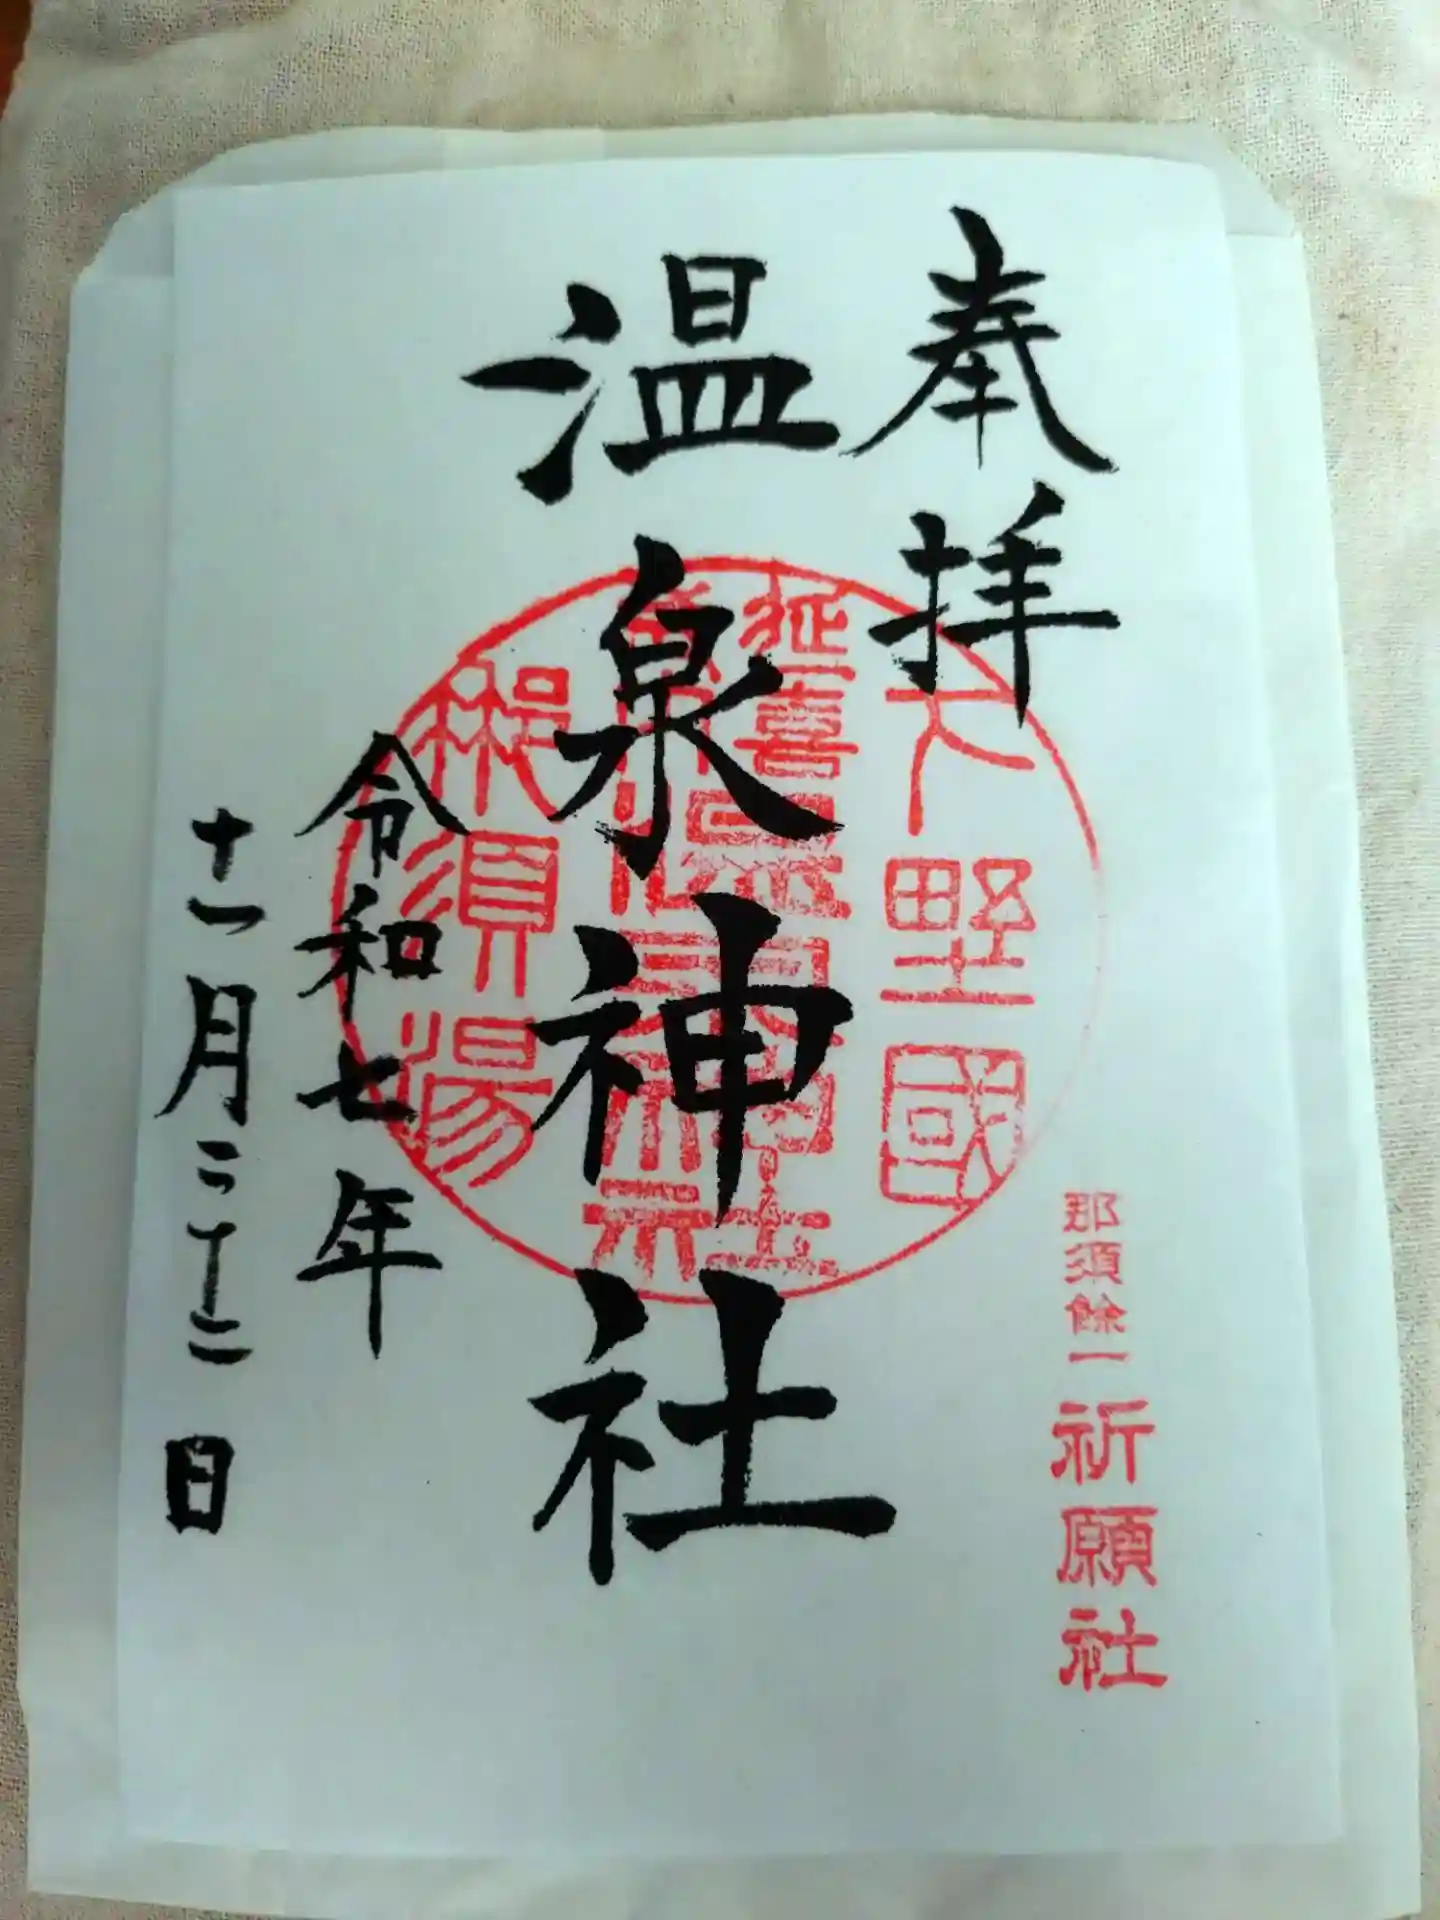 奉拝
下野國
那須餘一祈願社
延喜式
温泉神社
那須湯
令和七年
十一月二十二日